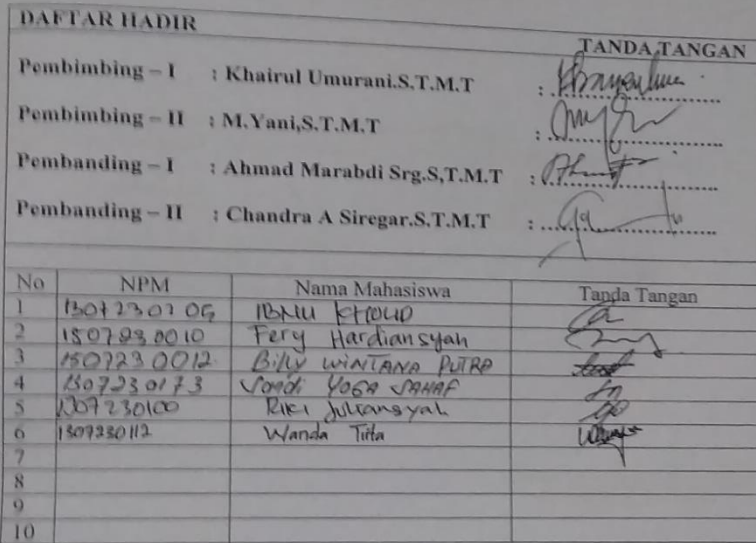 DAFTAR HADIR
TANDA TANGAN
Pembimbing – I : Khairul Umurani.S.T.M.T :
Pembimbing – II : M.Yani,S.T.M.T :
Pembanding – I : Ahmad Marabdi Srg.S,T.M.T :
Pembanding – II : Chandra A Siregar.S.T.M.T :
No NPM Nama Mahasiswa Tanda Tangan
1 1307230205 IBNU
2 1507230010 Fery Hardiansyah
3 1507230012 Billy WINTANA PUTRA
4 1307230173 YOGA SAHAF
5 1307230100 Riki Juliansyah
6 1307230112 Wanda Tirta
7
8
9
10